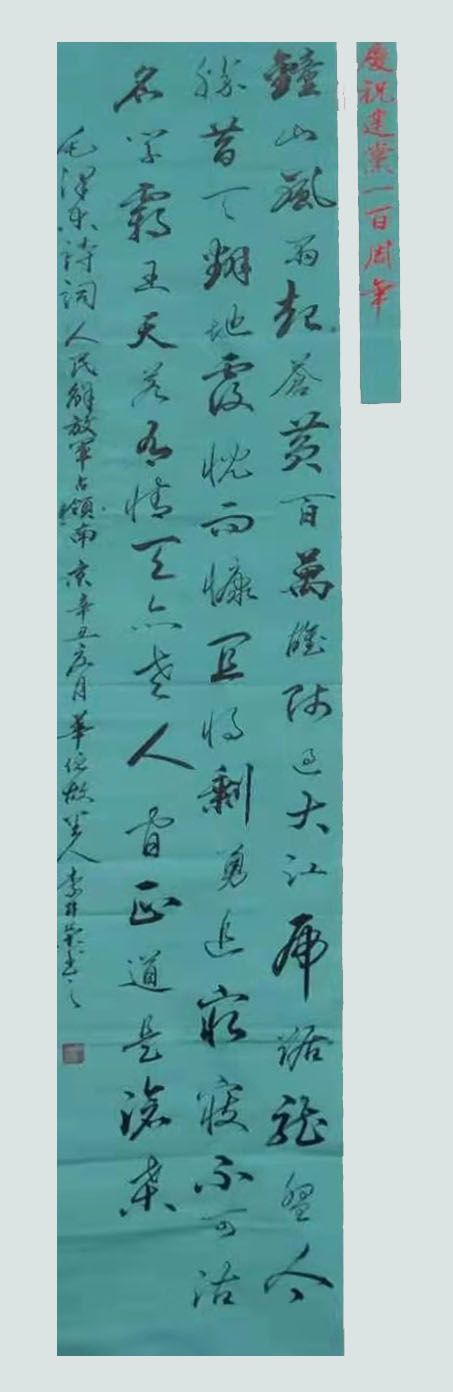 慶祝建黨一百周年
鐘山風雨起蒼黄百萬雄師過大江虎踞龍盤今
勝昔天翻地覆慨而慷宜將剩勇追窮寇不可沽
名學霸王天若有情天亦老人間正道是滄桑
毛澤东詩詞人民解放軍占領南京辛丑月華佗故里人李书之